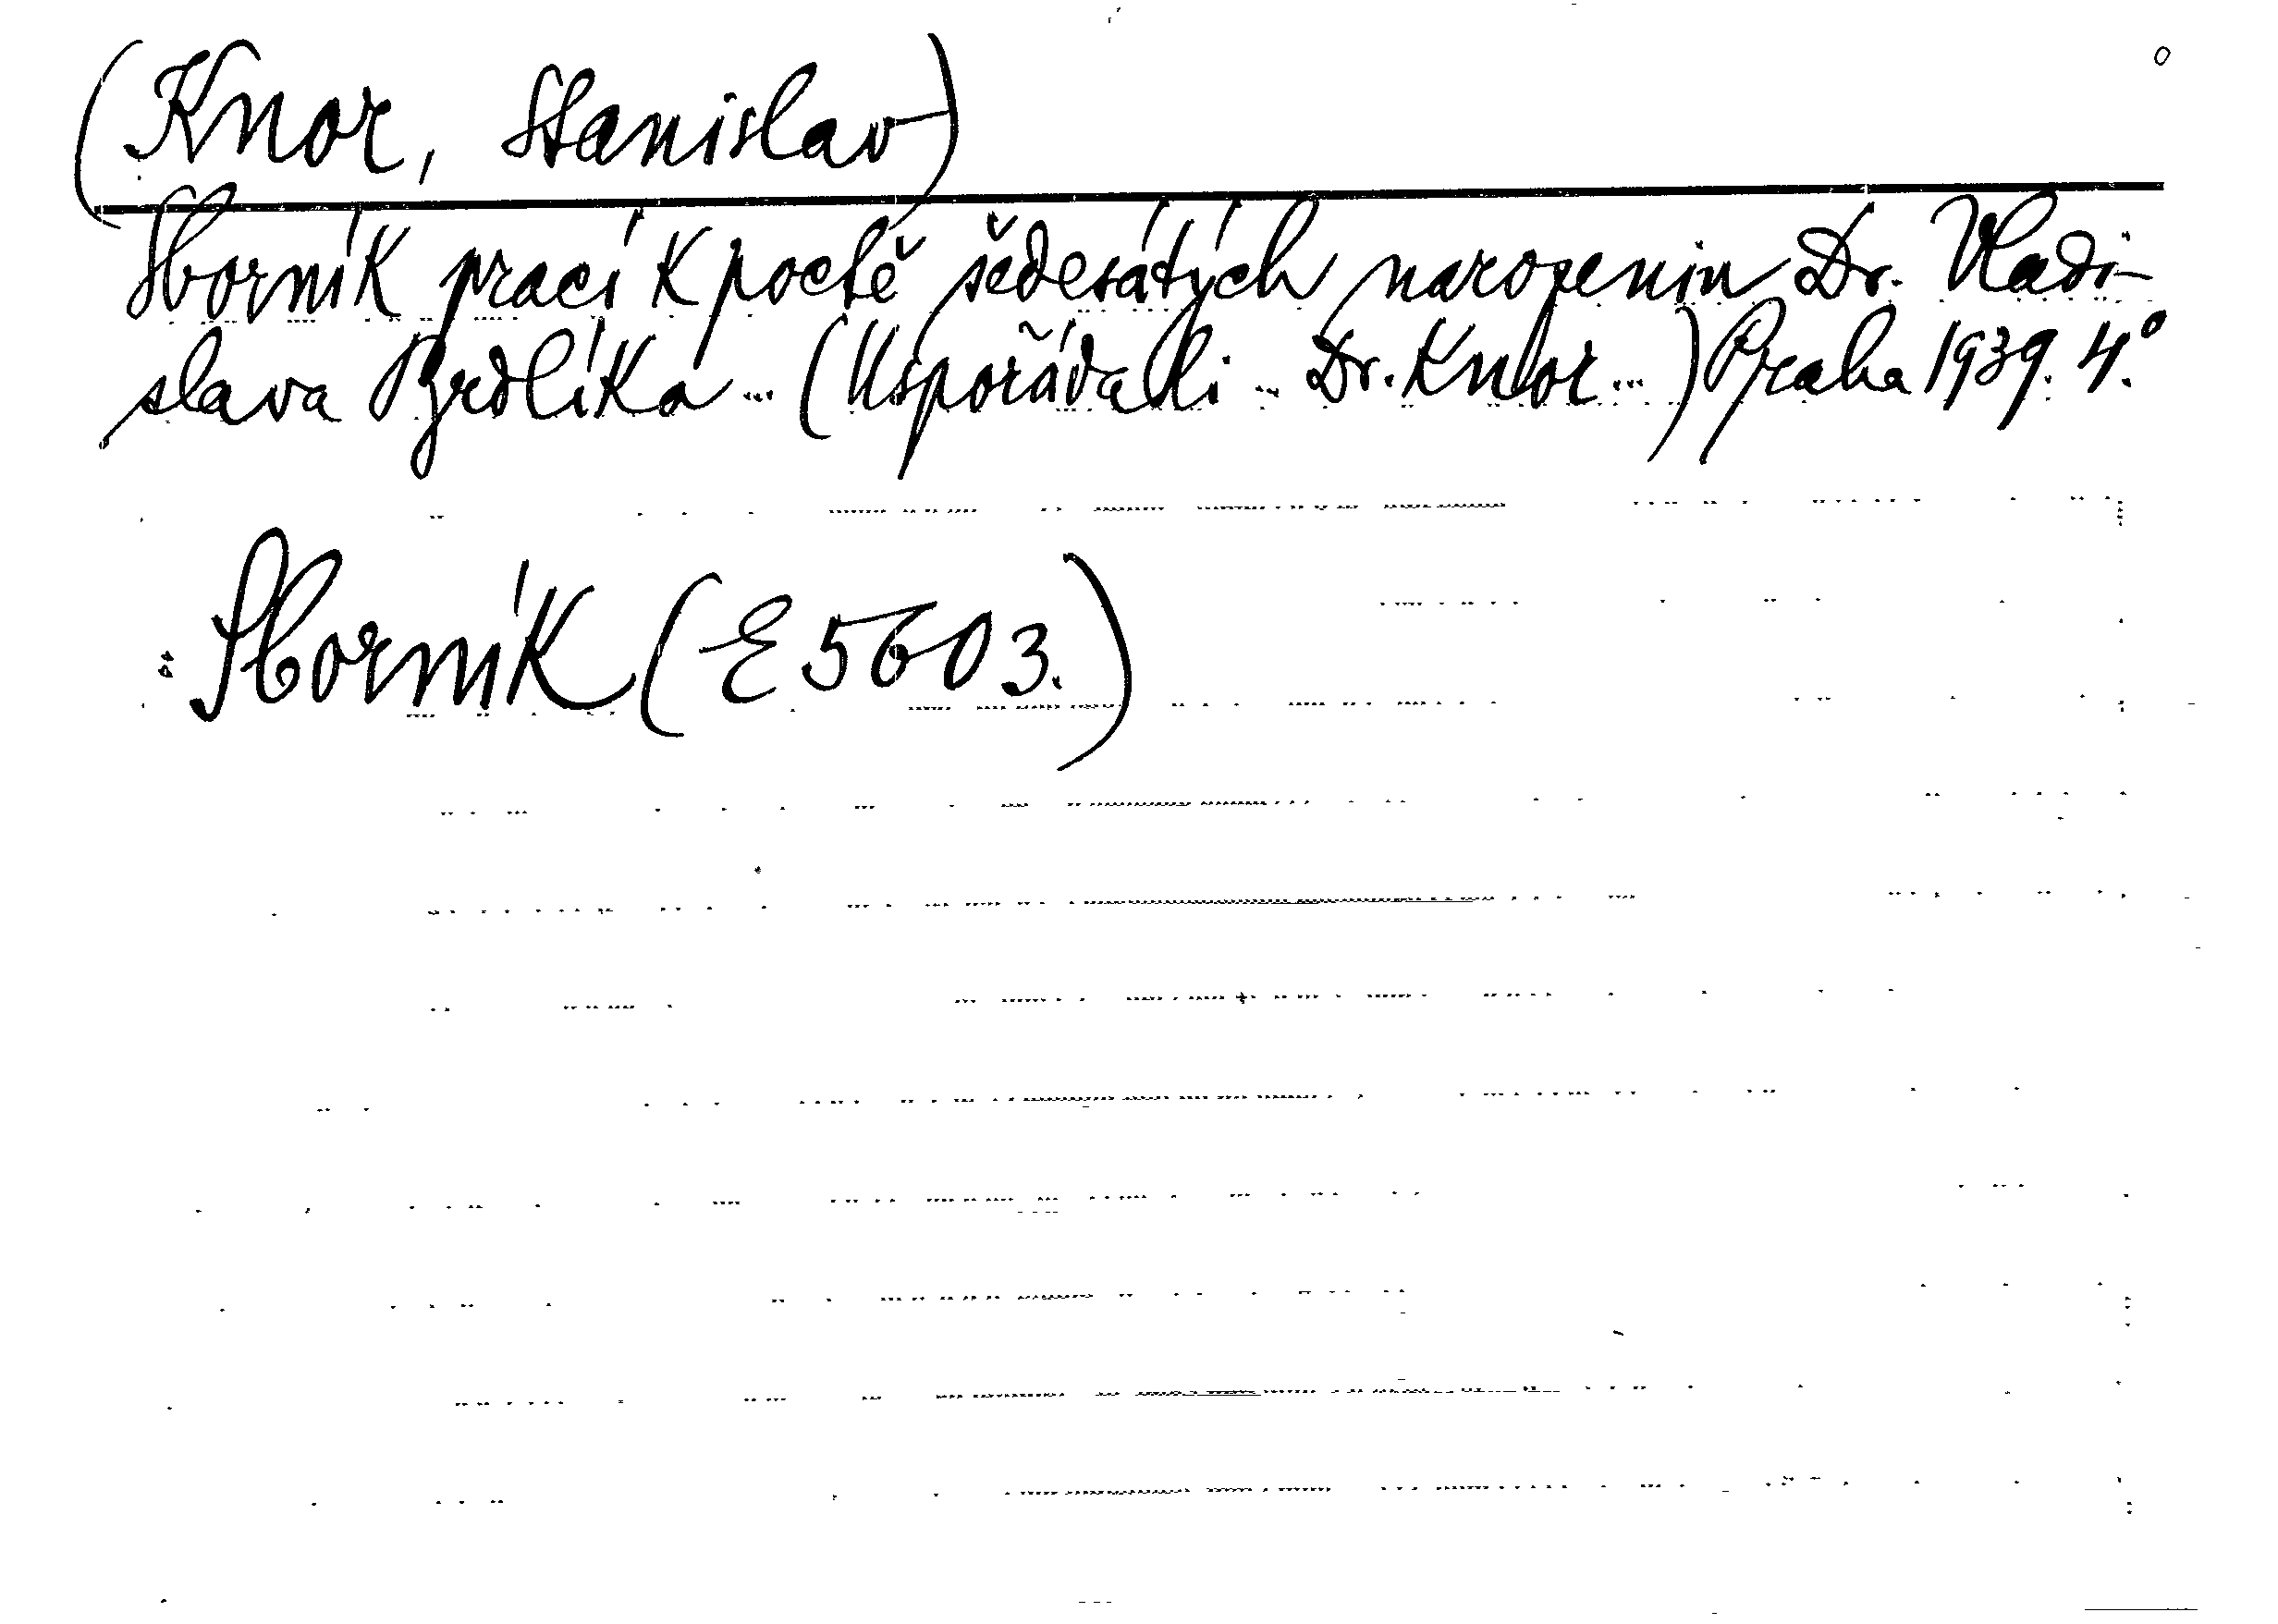 (Knor, Stanislav)
Sborník prací k poctě šedesátých narozenin Dr. Vladi-
slava Brdlíka ... (Uspořádali ... Dr. Knor ...) Praha 1939. 4.°
Sborník (E 5603.)